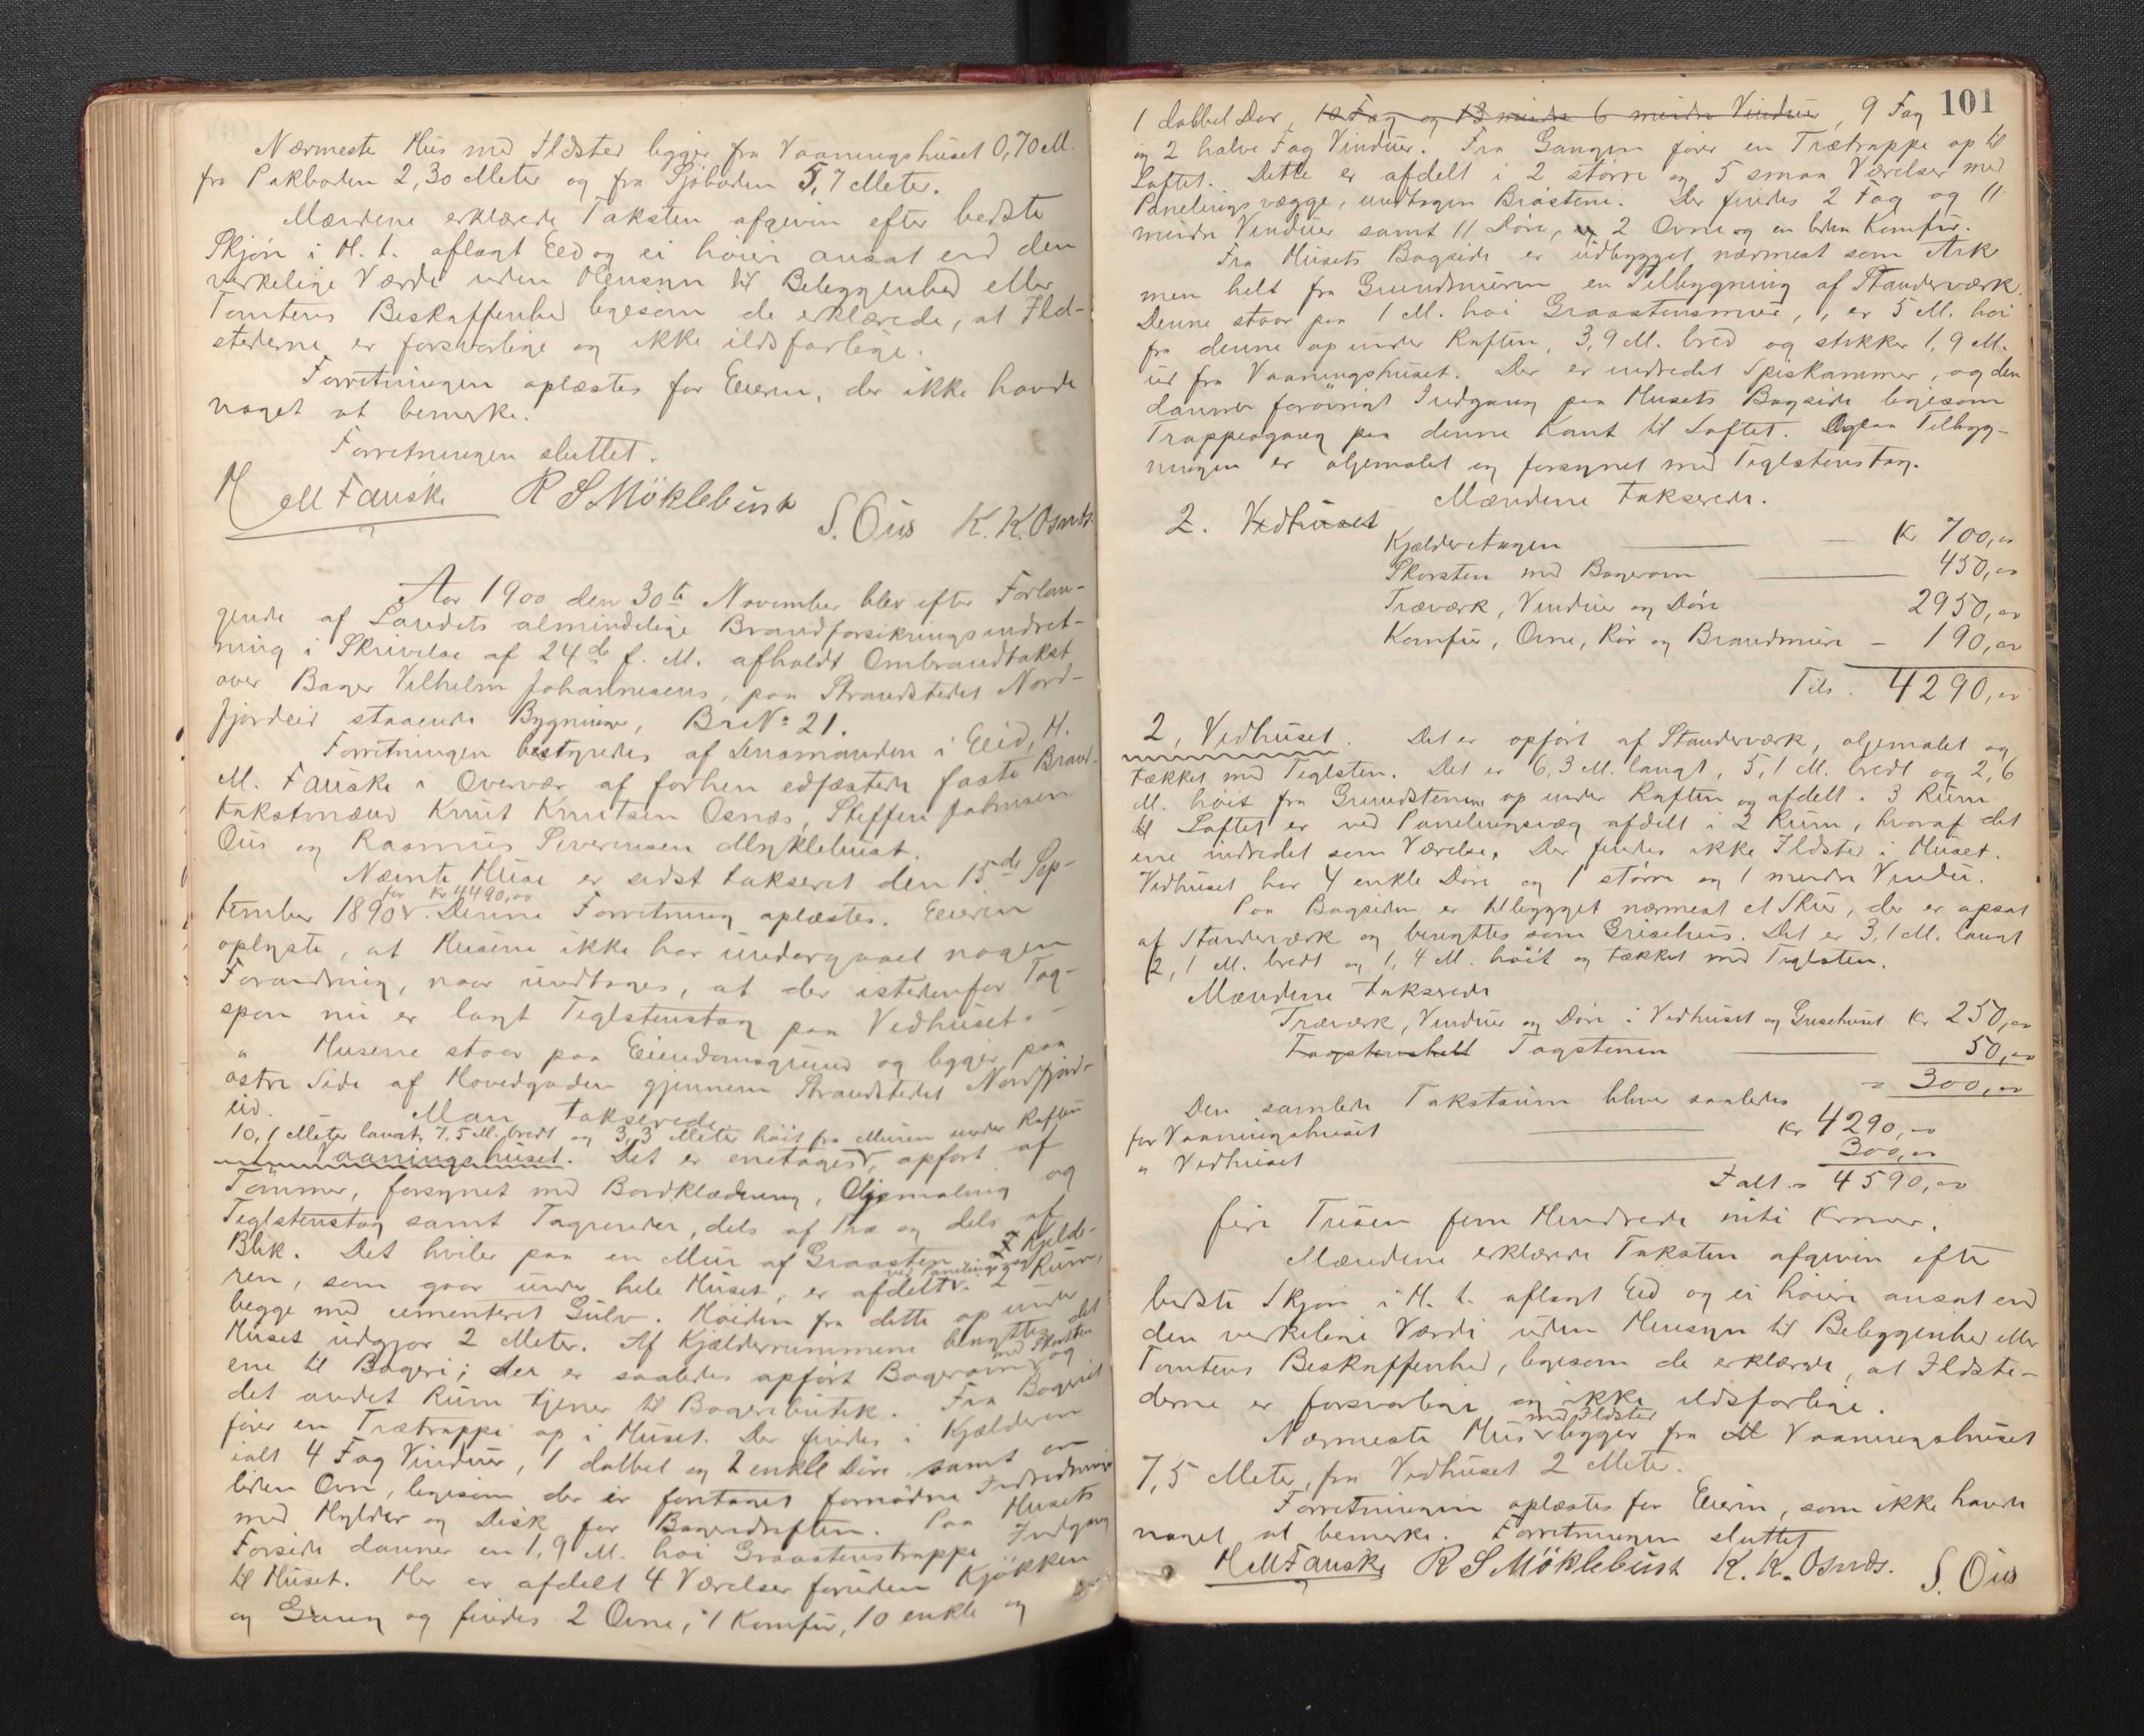 Nærmeste Hus med Ildsted ligger fra Vaaningshuset 0,70 M.
fra Pakboden 2,30 Meter og fra Sjøboden 5,7 Meter.
Mændene erklærede Taksten afgiven efter bedste
Skjøn i H. t. aflagt Eed og ei høiere ansat end den
virkelige Værdi uden Hensyn til Beliggenhed eller
Tomtens Beskaffenhed ligesom de erklærede, at Ild-
stederne er forsvarlige og ikke ildsfarlige.
Forretningen oplæstes for Eieren, der ikke havde
noget at bemerke.
Forretningen sluttet.
H M Fauske R S Möklebust S. Ous K. K. Osnæs.
Aar 1900 den 30te November blev efter Forlan-
gende af Landets almindelige Brandforsikringsindret-
ning i Skrivelse af 24de f. M. afholdt Ombrandtakst
over Bager Vilhelm Johannesens, paa Strandstedet Nord-
fjordeid staaende Bygninger, Br No 21.
Forretningen bestyredes af Lensmanden i Eid, H.
M. Fauske i Overvær af forhen edfæstede faste Brand-
takstmænd Knut Knutsen Osnæs, Steffen Johnsen
Ous og Rasmus Severinsen Myklebust.
Nævnte Huse er sidst takseret den 15de Sep-
for Kr 4490,00
tember 1890 v. Denne Forretning oplæstes. Eieren
oplyste, at Husene ikke har undergaaet nogen
Forandring, naar undtages, at der istedenfor Tag-
spon nu er lagt Teglstenstag paa Vedhuset. -
" Husene staar paa Eiendomsgrund og ligger paa
østre Side af Hovedgaden gjennem Strandstedet Nordfjord-
eid. Man takserede
10,1 Meter langt, 7,5 M. bredt og 3,3 Meter høit fra Muren under Raften
1. Vaaningshuset. Det er enetages v, opført af
Tømmer, forsynet med Bordklædning, Oljemaling og
Teglstenstag samt Tagrender, dels af Træ og dels af
Blik. Det hviler paa en Mur af Graasten. Kjelde-
ved Panelingsvæg
ren, som gaar under hele Huset, er afdelt v. i 2 Rum,
begge med cementeret Gulv. Høiden fra dette op under
Huset udgjør 2 Meter. Af Kjælderrummene benyttes det
med Skorsten
ene til Bageri; der er saaledes opført Bagerovn v og
det andet Rum tjener til Bageributik. Fra Bageriet
fører en Trætrappe op i Huset. Der findes i Kjælderen
ialt 4 Fag Vinduer, 1 dobbel og 2 enkle Døre samt en
liden Ovn, ligesom der er foretaget fornødne Indredninger
med Hylder og Disk for Bageridriften. Paa Husets
Forside danner en 1,9 M. høi Graastenstrappe Indgang
til Huset. Her er afdelt 4 Værelser foruden Kjøkken
og Gang og findes 2 Ovne, 1 Komfur, 10 enkle og
101
1 dobbel Dør, 10 Fag og 13 mindre 6 mindre Vinduer, 9 Fag
og 2 halve Fag Vinduer. Fra Gangen fører en Trætrappe op til
Loftet. Dette er afdelt i 2 større og 5 smaa Værelser med
Panelingsvægge, undtagen Brøstene. Der findes 2 Fag og 11
mindre Vinduer samt 11 Døre, og 2 Ovne og en liden Komfur.
Fra Husets Bagside er udbygget nærmest som Ark
men helt fra Grundmuren en Tilbygning af Standerværk.
Denne staar paa 1 M. høi Graastensmur, er 5 M. høi
fra denne op under Raften, 3,9 M. bred og stikker 1,9 M.
ud fra Vaaningshuset. Der er indredet Spiskammer, og den
danner forøvrigt Indgang paa Husets Bagside ligesom
Trappeogang paa denne Kant til Loftet. Ogsaa Tilbyg-
ningen er oljemalet og forsynet med Teglstenstag.
Mændene takserede.
2. Vedhuset
Kjælderetagen — Kr 700,00
Skorsten med Bagerovn — 450,00
Træværk, Vinduer og Døre 2950,00
Komfur, Ovne, Rør og Brandmure - 190,00
Tils. 4290,00
2, Vedhuset. Det er opført af Standerværk, oljemalet og
tækket med Teglsten. Det er 6,3 M. langt, 5,1 M. bredt og 2,6
M. høit fra Grundstenene op under Raften og afdelt i 3 Rum
til Loftet er ved Panelingsvæg afdelt i 2 Rum, hvoraf det
ene indredet som Værelse. Der findes ikke Ildsted i Huset.
Vedhuset har 4 enkle Døre og 1 større og 1 mindre Vindu.
Paa Bagsiden er tilbygget nærmest et Skur, der er opsat
af Standerværk og benyttes som Grisehus. Det er 3,1 M. langt
2,1 M. bredt og 1,4 M. høit og tækket med Teglsten.
Mændene takserede
Træværk, Vinduer og Døre i Vedhuset og Grisehuset Kr 250,00
Tagstenshell Tagstenen — 50,00
= 300,00
Den samlede Takstsum bliver saaledes
for Vaaningshuset — Kr 4290,00
" Vedhuset — 300,00
Ialt = 4590,00
fire Tusen fem Hundrede niti Kroner.
Mændene erklærede Taksten afgiven efter
bedste Skjøn i H. t. aflagt Eed og ei høiere ansat end
den virkelige Værdi uden Hensyn til Beliggenhed eller
Tomtens Beskaffenhed, ligesom de erklærede, at Ildste-
derne er forsvarlige og ikke ildsfarlige.
med Ildsted
Nærmeste Hus v ligger fra Vaaningshuset
7,5 Meter, fra Vedhuset 2 Meter.
Forretningen oplæstes for Eieren, som ikke havde
noget at bemerke. Forretningen sluttet
H M Fauske R S Möklebust K. K. Osnæs. S. Ous